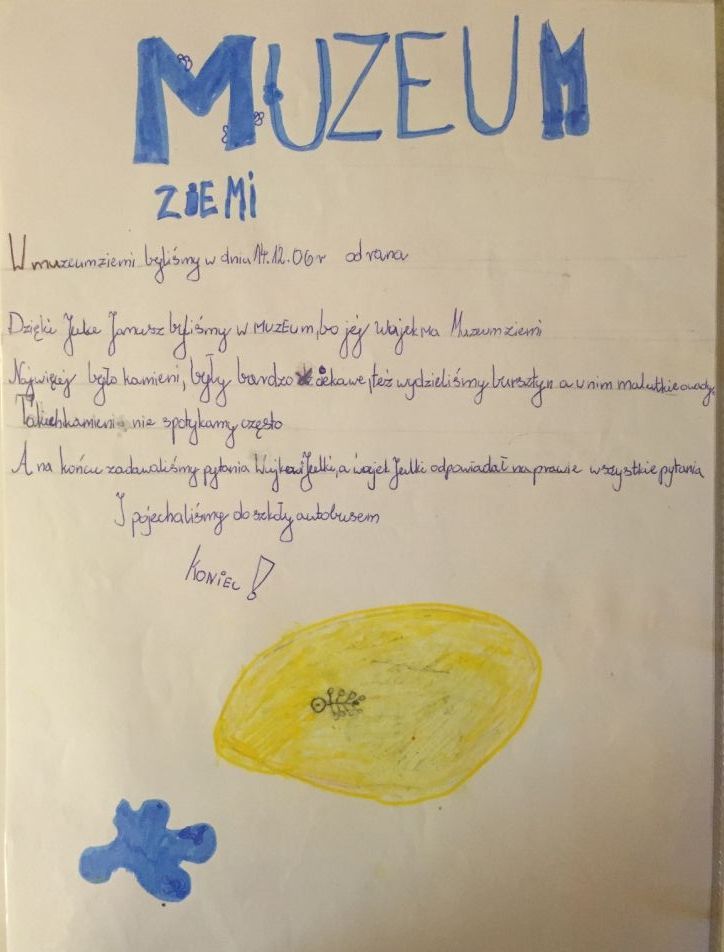 MUZEUM
ZIEMI
W muzeumziemi byliśmy w dniu 14.12.06r od rana
Dzięki Julce Janusz byliśmy w MUZEUm, bo jej Wójek Ma Muzeumziemi
Najwięcej było kamieni, były bardzo ciekawe, też wydzieliśmy bursztyn a w nim malutkie owady.
Takichkamieni nie spotykamy często
A na końcu zadawaliśmy pytania Wujkowi Julki, a wojek Julki odpowiadał na prawie wszystkie pytania
I pojechaliśmy do szkoły autobusem
KONIEC!